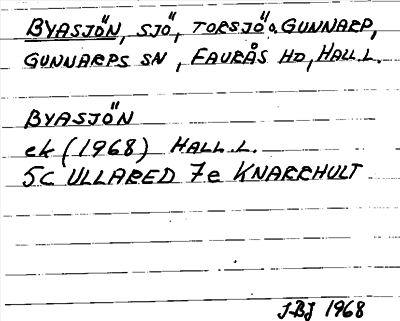 BYASJÖN, SJÖ, TORSJÖ o. GUNNARP,
GUNNARPS SN, FAURÅS HD, HALL.L.
BYASJÖN
ek (1968) HALL.L.
5C ULLARED 7e KNARRHULT
JBJ 1968